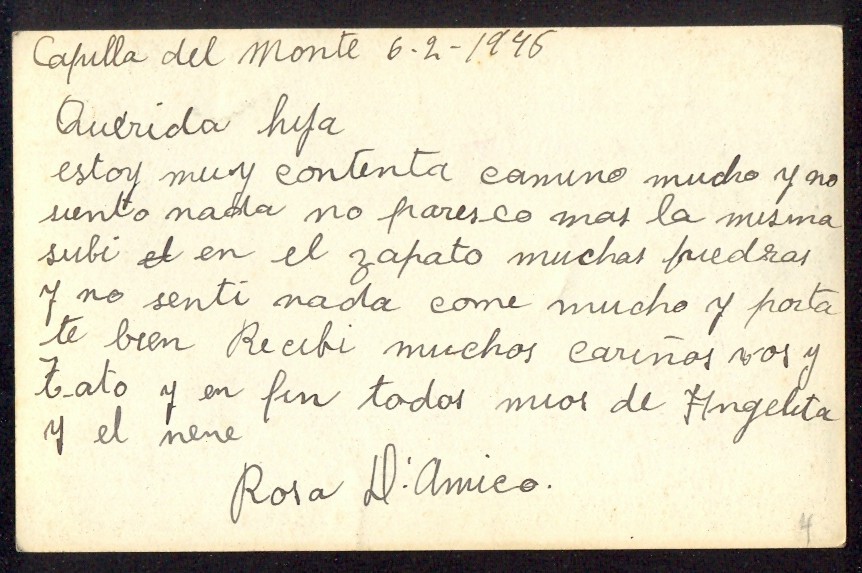 Capilla del Monte 6-2-1946
Querida hija
estoy muy contenta camino mucho y no
siento nada no paresco mas la misma
subi el en el zapato muchas piedras
y no senti nada come mucho y porta
te bien Recibi muchos cariños vos y
Tato y en fin todos mios de Angelita
y el nene
Rosa D'Amico.
4